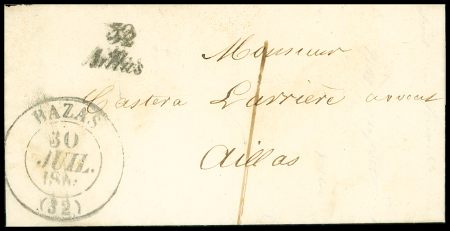 32
Aillas
Monsieur
Castera Larrière avocat
Aillas
BAZAS
30
JUIL.
(32)